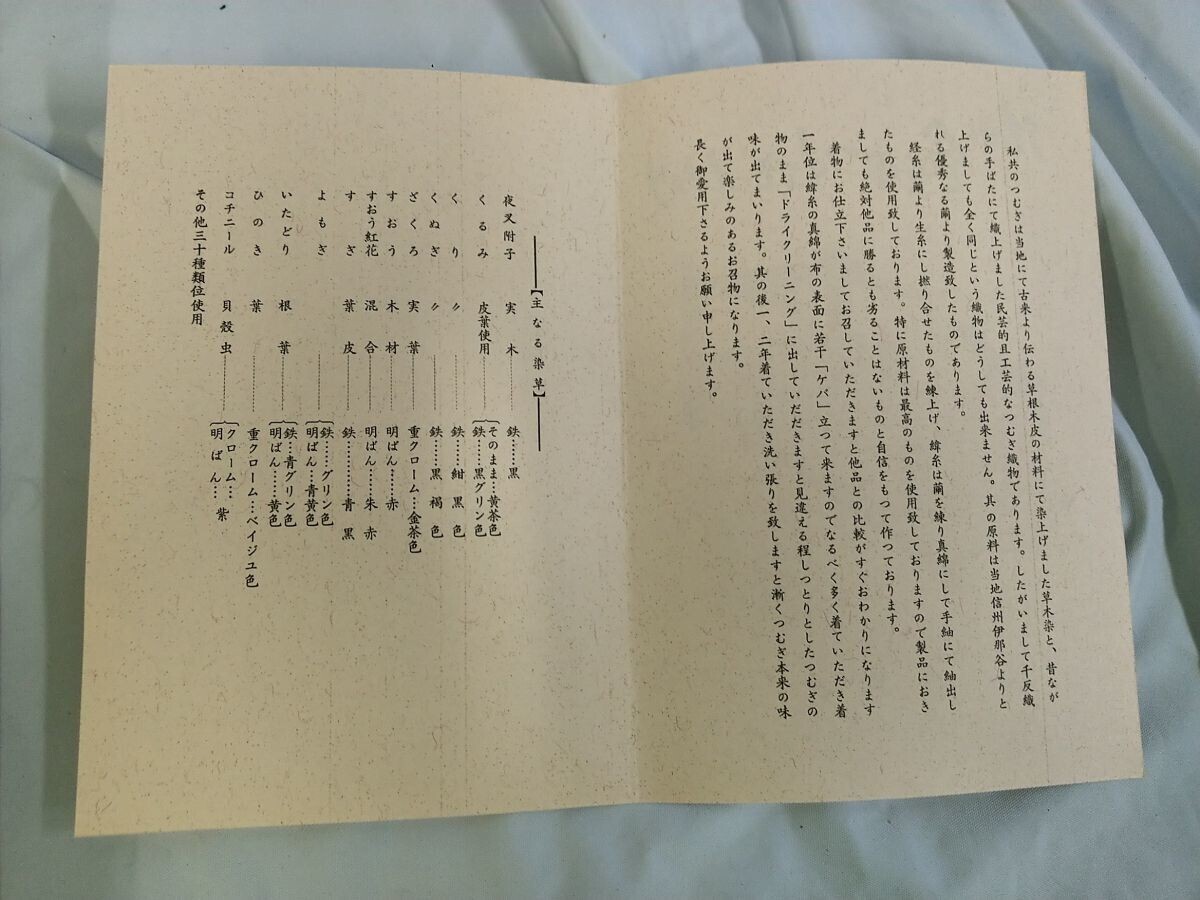 私共のつむぎは当地にて古来より伝わる草根木皮の材料にて染上げました草木染と、昔なが
らの手ばたにて織上げました民芸的且工芸的なつむぎ織物であります。したがいまして千反織
上げましても全く同じという織物はどうしても出来ません。其の原料は当地信州伊那谷よりと
れる優秀なる繭より製造致したものであります。
経糸は繭より生糸にし撚り合せたものを練上げ、緯糸は繭を練り真綿にして手紬にて紬出し
たものを使用致しております。特に原材料は最高のものを使用致しておりますので製品におき
ましても絶対他品に勝るとも劣ることはないものと自信をもつて作つております。
着物にお仕立下さいましてお召していただきますと他品との比較がすぐおわかりになります
一年位は緯糸の真綿が布の表面に若干「ケバ」立つて来ますのでなるべく多く着ていただき着
物のまま「ドライクリーニング」に出していだだきますと見違える程しつとりとしたつむぎの
味が出てまいります。其の後一、二年着ていただき洗い張りを致しますと漸くつむぎ本来の味
が出て楽しみのあるお召物になります。
長く御愛用下さるようお願い申し上げます。
【主なる染草】
夜叉附子 実 木 鉄……黒
くるみ 皮葉使用 そのまま…黄茶色 鉄……黒グリン色
くり 〃 鉄……紺黒色
くぬぎ 〃 鉄……黒褐色
ざくろ 実葉 重クローム…金茶色
すおう 木材 明ばん……赤
すおう紅花 混合 明ばん……朱赤
すぎ 葉皮 鉄…………青黒
よもぎ 鉄……グリン色 明ばん…青黄色
いたどり 根葉 鉄…青グリン色 明ばん……黄色
ひのき 葉 重クローム…ベイジユ色
コチニール 貝殻虫 クローム… 明ばん… 紫
その他三十種類位使用